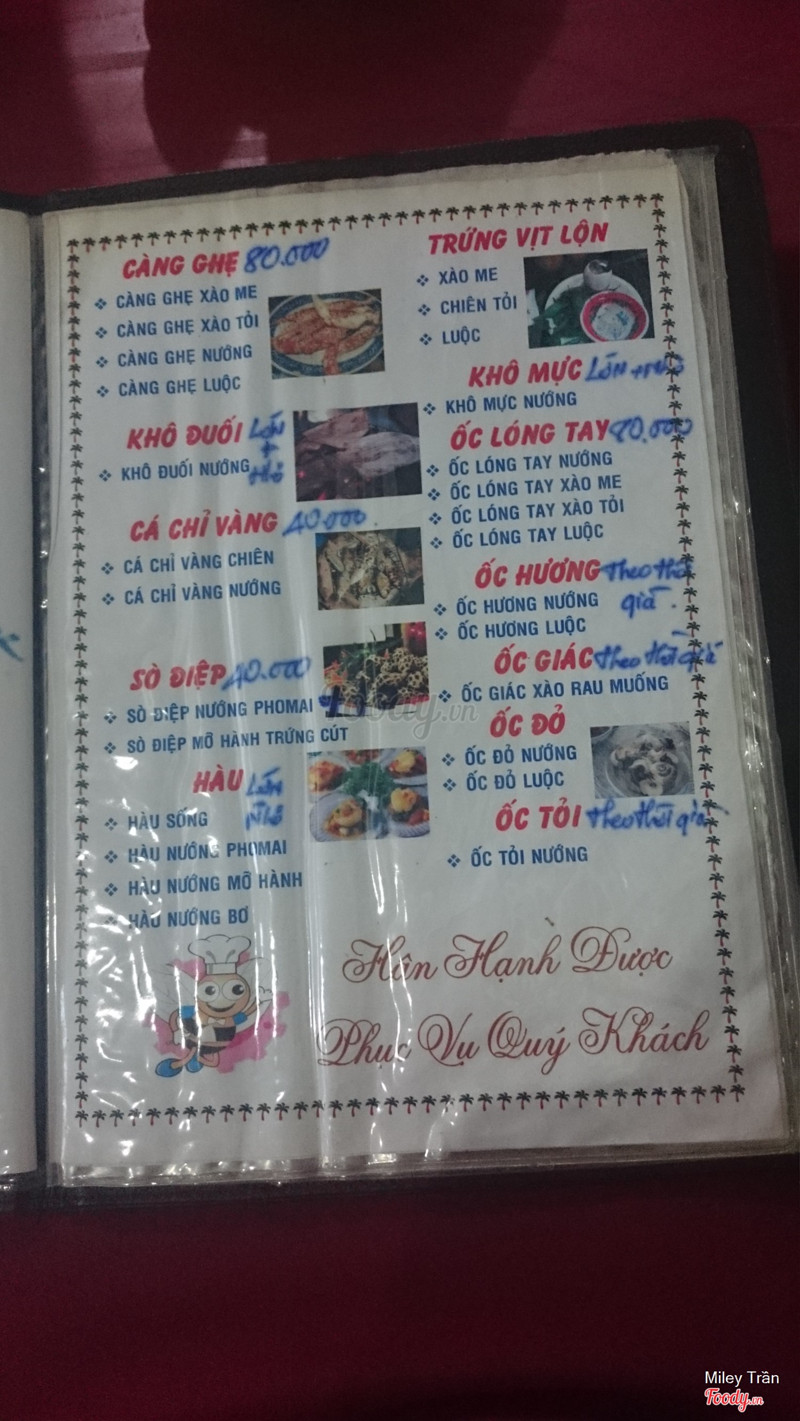 CÀNG GHẸ 80.000
CÀNG GHẸ XÀO ME
CÀNG GHẸ XÀO TỎI
CÀNG GHẸ NƯỚNG
CÀNG GHẸ LUỘC
KHÔ ĐUỐI Lớn + nhỏ
KHÔ ĐUỐI NƯỚNG
CÁ CHỈ VÀNG 40.000
CÁ CHỈ VÀNG CHIÊN
CÁ CHỈ VÀNG NƯỚNG
SÒ ĐIỆP 40.000
SÒ ĐIỆP NƯỚNG PHOMAI
SÒ ĐIỆP MỠ HÀNH TRỨNG CÚT
HÀU Lớn nhỏ
HÀU SỐNG
HÀU NƯỚNG PHOMAI
HÀU NƯỚNG MỠ HÀNH
HÀU NƯỚNG BƠ
TRỨNG VỊT LỘN
XÀO ME
CHIÊN TỎI
LUỘC
KHÔ MỰC Lớn + nhỏ
KHÔ MỰC NƯỚNG
ỐC LÓNG TAY 80.000
ỐC LÓNG TAY NƯỚNG
ỐC LÓNG TAY XÀO ME
ỐC LÓNG TAY XÀO TỎI
ỐC LÓNG TAY LUỘC
ỐC HƯƠNG Theo thời giá.
ỐC HƯƠNG NƯỚNG
ỐC HƯƠNG LUỘC
ỐC GIÁC theo thời giá
ỐC GIÁC XÀO RAU MUỐNG
ỐC ĐỎ
ỐC ĐỎ NƯỚNG
ỐC ĐỎ LUỘC
ỐC TỎI theo thời giá
ỐC TỎI NƯỚNG
Hân Hạnh Được
Phục Vụ Quý Khách
Foody.vn
Miley Trần
Foody.vn